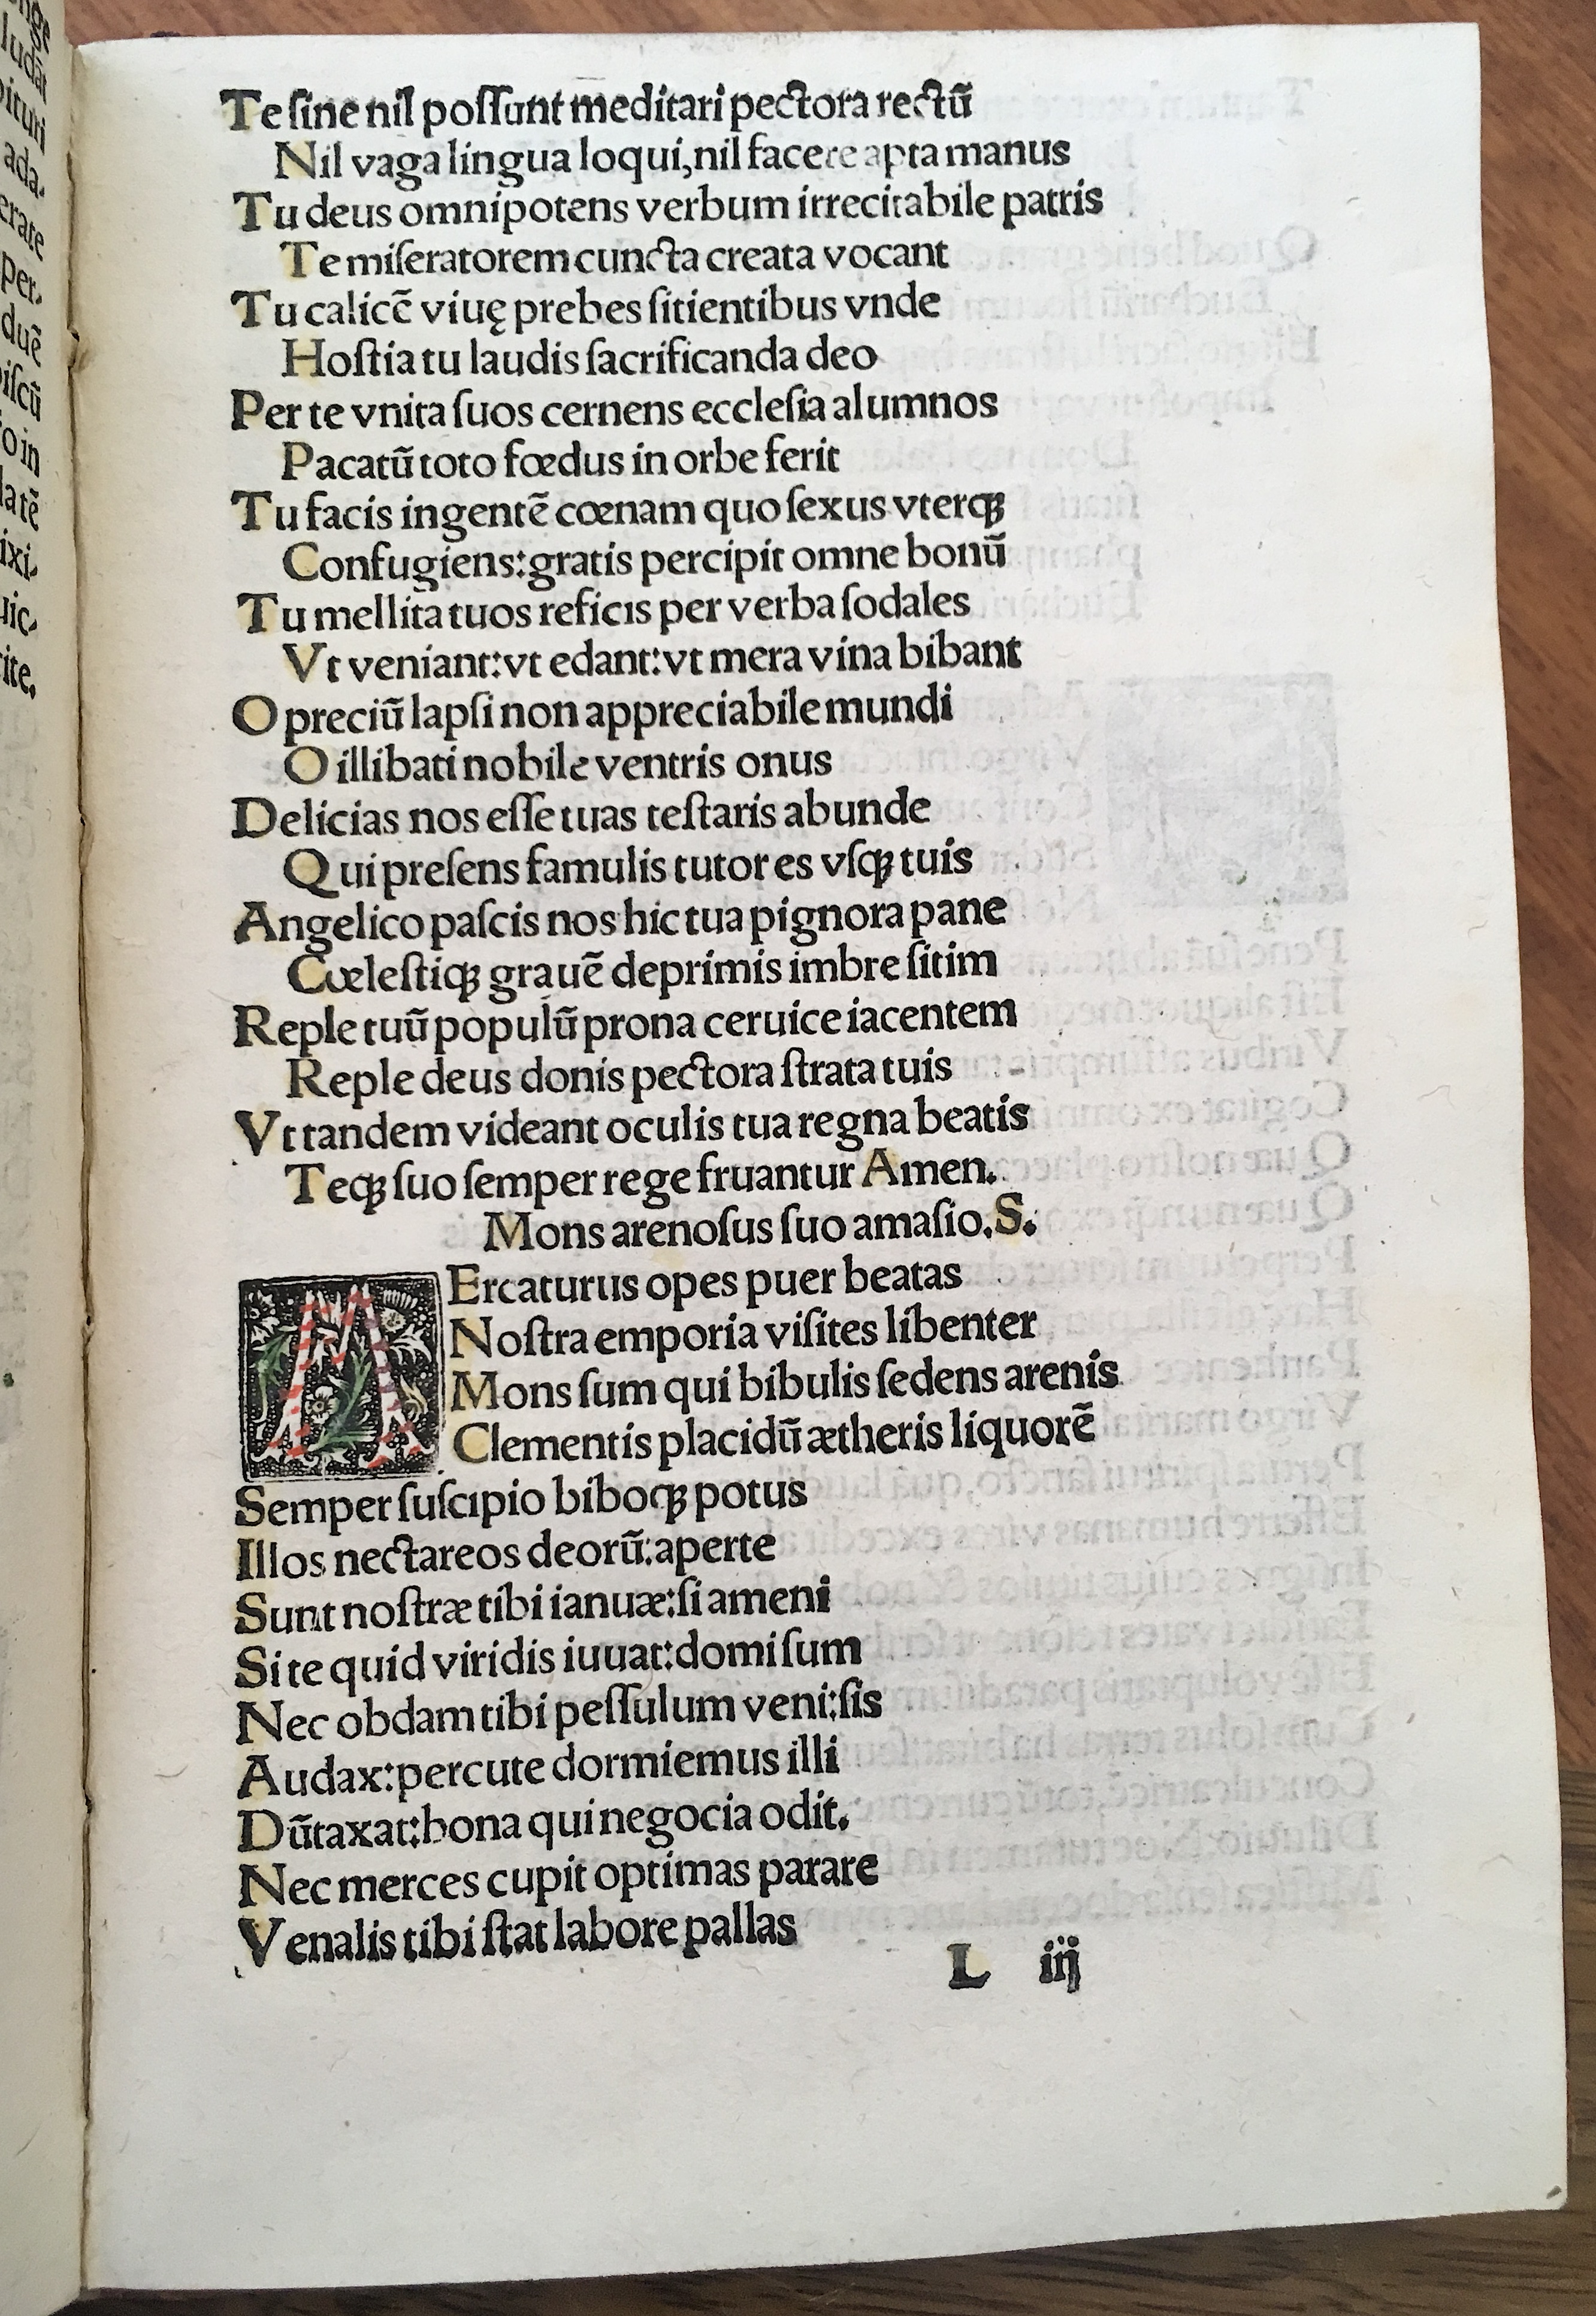 Te ſine nil poſſunt meditari pectora rectū
Nil vaga lingua loqui, nil facere apta manus
Tu deus omnipotens verbum irrecitabile patris
Te miſeratorem cuncta creata vocant
Tu calicē viuę prebes ſitientibus vnde
Hoſtia tu laudis ſacrificanda deo
Per te vnita ſuos cernens eccleſia alumnos
Pacatū toto fœdus in orbe ferit
Tu facis ingentē cœnam quo ſexus vterqꝫ
Confugiens: gratis percipit omne bonū
Tu mellita tuos reficis per verba ſodales
Vt veniant: vt edant: vt mera vina bibant
O preciū lapſi non appreciabile mundi
O illibati nobile ventris onus
Delicias nos eſſe tuas teſtaris abunde
Qui preſens famulis tutor es vſqꝫ tuis
Angelico paſcis nos hic tua pignora pane
Cœleſtiqꝫ grauē deprimis imbre ſitim
Reple tuū populū prona ceruice iacentem
Reple deus donis pectora ſtrata tuis
Vt tandem videant oculis tua regna beatis
Teqꝫ ſuo ſemper rege fruantur Amen.
Mons arenoſus ſuo amaſio. S.
MErcaturus opes puer beatas
Noſtra emporia viſites libenter
Mons ſum qui bibulis ſedens arenis
Clementis placidū ætheris liquorē
Semper ſuſcipio biboqꝫ potus
Illos nectareos deorū: aperte
Sunt noſtræ tibi ianuæ: ſi ameni
Si te quid viridis iuuat: domi ſum
Nec obdam tibi peſſulum veni: ſis
Audax: percute dormiemus illi
Dūtaxat: bona qui negocia odit.
Nec merces cupit optimas parare
Venalis tibi ſtat labore pallas
L iij